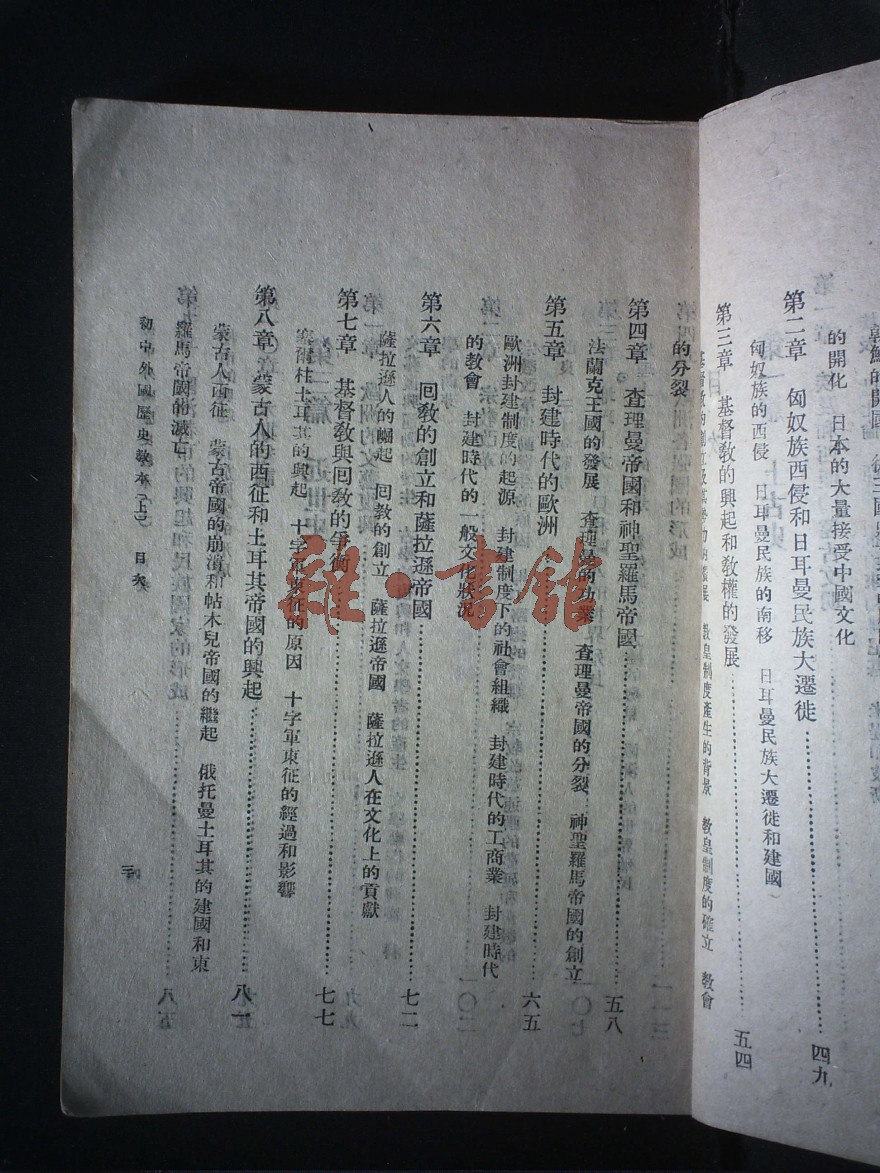 的開化　日本的大量接受中國文化
第二章　匈奴族西侵和日耳曼民族大遷徙……四九
匈奴族的西侵　日耳曼民族的南移　日耳曼民族大遷徙和建國
第三章　基督敎的興起和敎權的發展……五四
敎皇制度產生的背景　敎皇制度的確立　敎會
的分裂
第四章　查理曼帝國和神聖羅馬帝國……五八
法蘭克王國的發展　查理曼的功業　查理曼帝國的分裂　神聖羅馬帝國的創立
第五章　封建時代的歐洲……六五
歐洲封建制度的起源　封建制度下的社會組織　封建時代的工商業　封建時代
的敎會　封建時代的一般文化狀況
第六章　囘敎的創立和薩拉遜帝國……七二
薩拉遜人的崛起　囘敎的創立　薩拉遜帝國　薩拉遜人在文化上的貢獻
第七章　基督敎與囘敎的爭衡……七七
塞爾柱土耳其的興起　十字軍東征的原因　十字軍東征的經過和影響
第八章　蒙古人的西征和土耳其帝國的興起……八一
蒙古人西征　蒙古帝國的崩潰和帖木兒帝國的繼起　俄托曼土耳其的建國和東
羅馬帝國的滅亡
初中外國歷史敎本（上）　目次
雜·書館